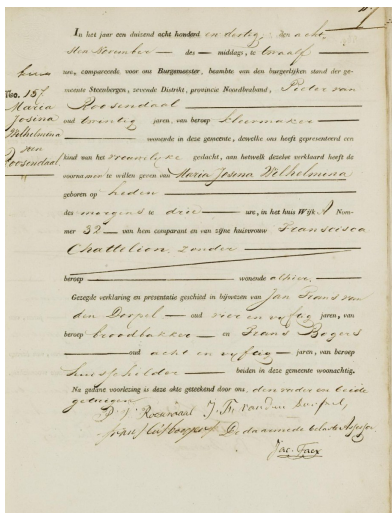 In het jaar een duizend acht honderd een dertig, den acht
sten November — des — middags, te twaalf
ure, compareerde voor ons Burgemeester, beambte van den burgerlijken stand der ge-
meente Steenbergen, zevende Distrikt, provincie Noordbraband, Pieter van
Roosendaal
No. 157.
Maria
Josina
Wilhelmina
van
Roosendaal
oud twintig jaren, van beroep
wonende in deze gemeente, dewelke ons heeft gepresenteerd een
kind van het vrouwelyke geslacht, aan hetwelk dezelve verklaard heeft de
voornamen te willen geven van Maria Josina Wilhelmina
geboren op heden
des morgens te drie ure, in het huis Wijk A Num-
mer 32 van hem comparant en van zijne huisvrouw Francisca
Chattelion, zonder
beroep wonende alhier
Gezegde verklaring en presentatie geschied in bijwezen van Jan Frans van
den Dorpel oud vier en vyftig jaren, van
beroep broodbakker en Frans Bogers
oud acht en vyftig jaren, van beroep
huisschilder beiden in deze gemeente woonachtig.
Na gedane voorlezing is deze akte geteekend door ons, den vader en beide
getuigen
Roosendaal J. F. van den Dorpel,
De daarmede belaste Assessor
Jac.